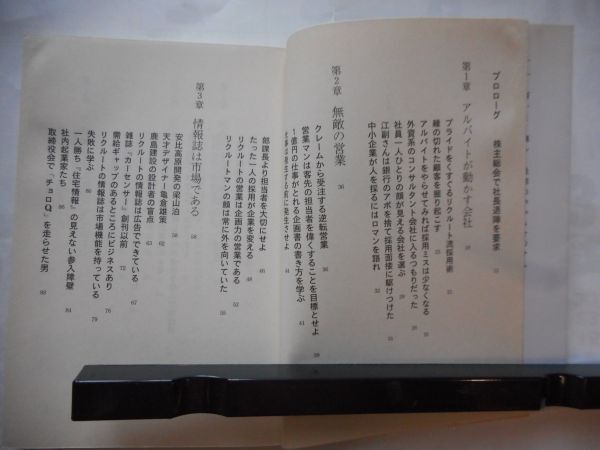 プロローグ 株主総会で社長退陣を要求 11
第1章 アルバイトが動かす会社
プライドをくすぐるリクルート流採用術
縁の切れた顧客を掘り起こす
アルバイトをやらせてみれば採用ミスは少なくなる
外資系のコンサルタント会社に入るつもりだった
社員一人ひとりの顔が見える会社を選ぶ
江副さんは銀行のアポを捨て採用面接に駆けつけた
中小企業が人を採るにはロマンを語れ 32
第2章 無敵の営業 36
クレームから受注する逆転営業 36
営業マンは客先の担当者を偉くすることを目標とせよ 39
1億円の仕事がとれる企画書の書き方を学ぶ 41
仕事は発生する前に発生させよ
部課長より担当者を大切にせよ 46
たった一人の採用が企業を変える 48
リクルートの営業は企画力の営業である 52
リクルートマンの顔は常に外を向いていた 55
第3章 情報誌は市場である 58
安比高原開発の梁山泊 58
天才デザイナー亀倉雄策 62
鹿島建設の設計者の盲点 63
リクルートの情報誌は広告でできている 67
雑誌「カーセンサー」創刊以前 72
需給ギャップのあるところにビジネスあり 76
リクルートの情報誌は市場機能を持っている 79
失敗に学ぶ 80
一人勝ち、「住宅情報」の見えない参入障壁 84
社内起業家たち 86
取締役会で「チョロQ」を走らせた男 88